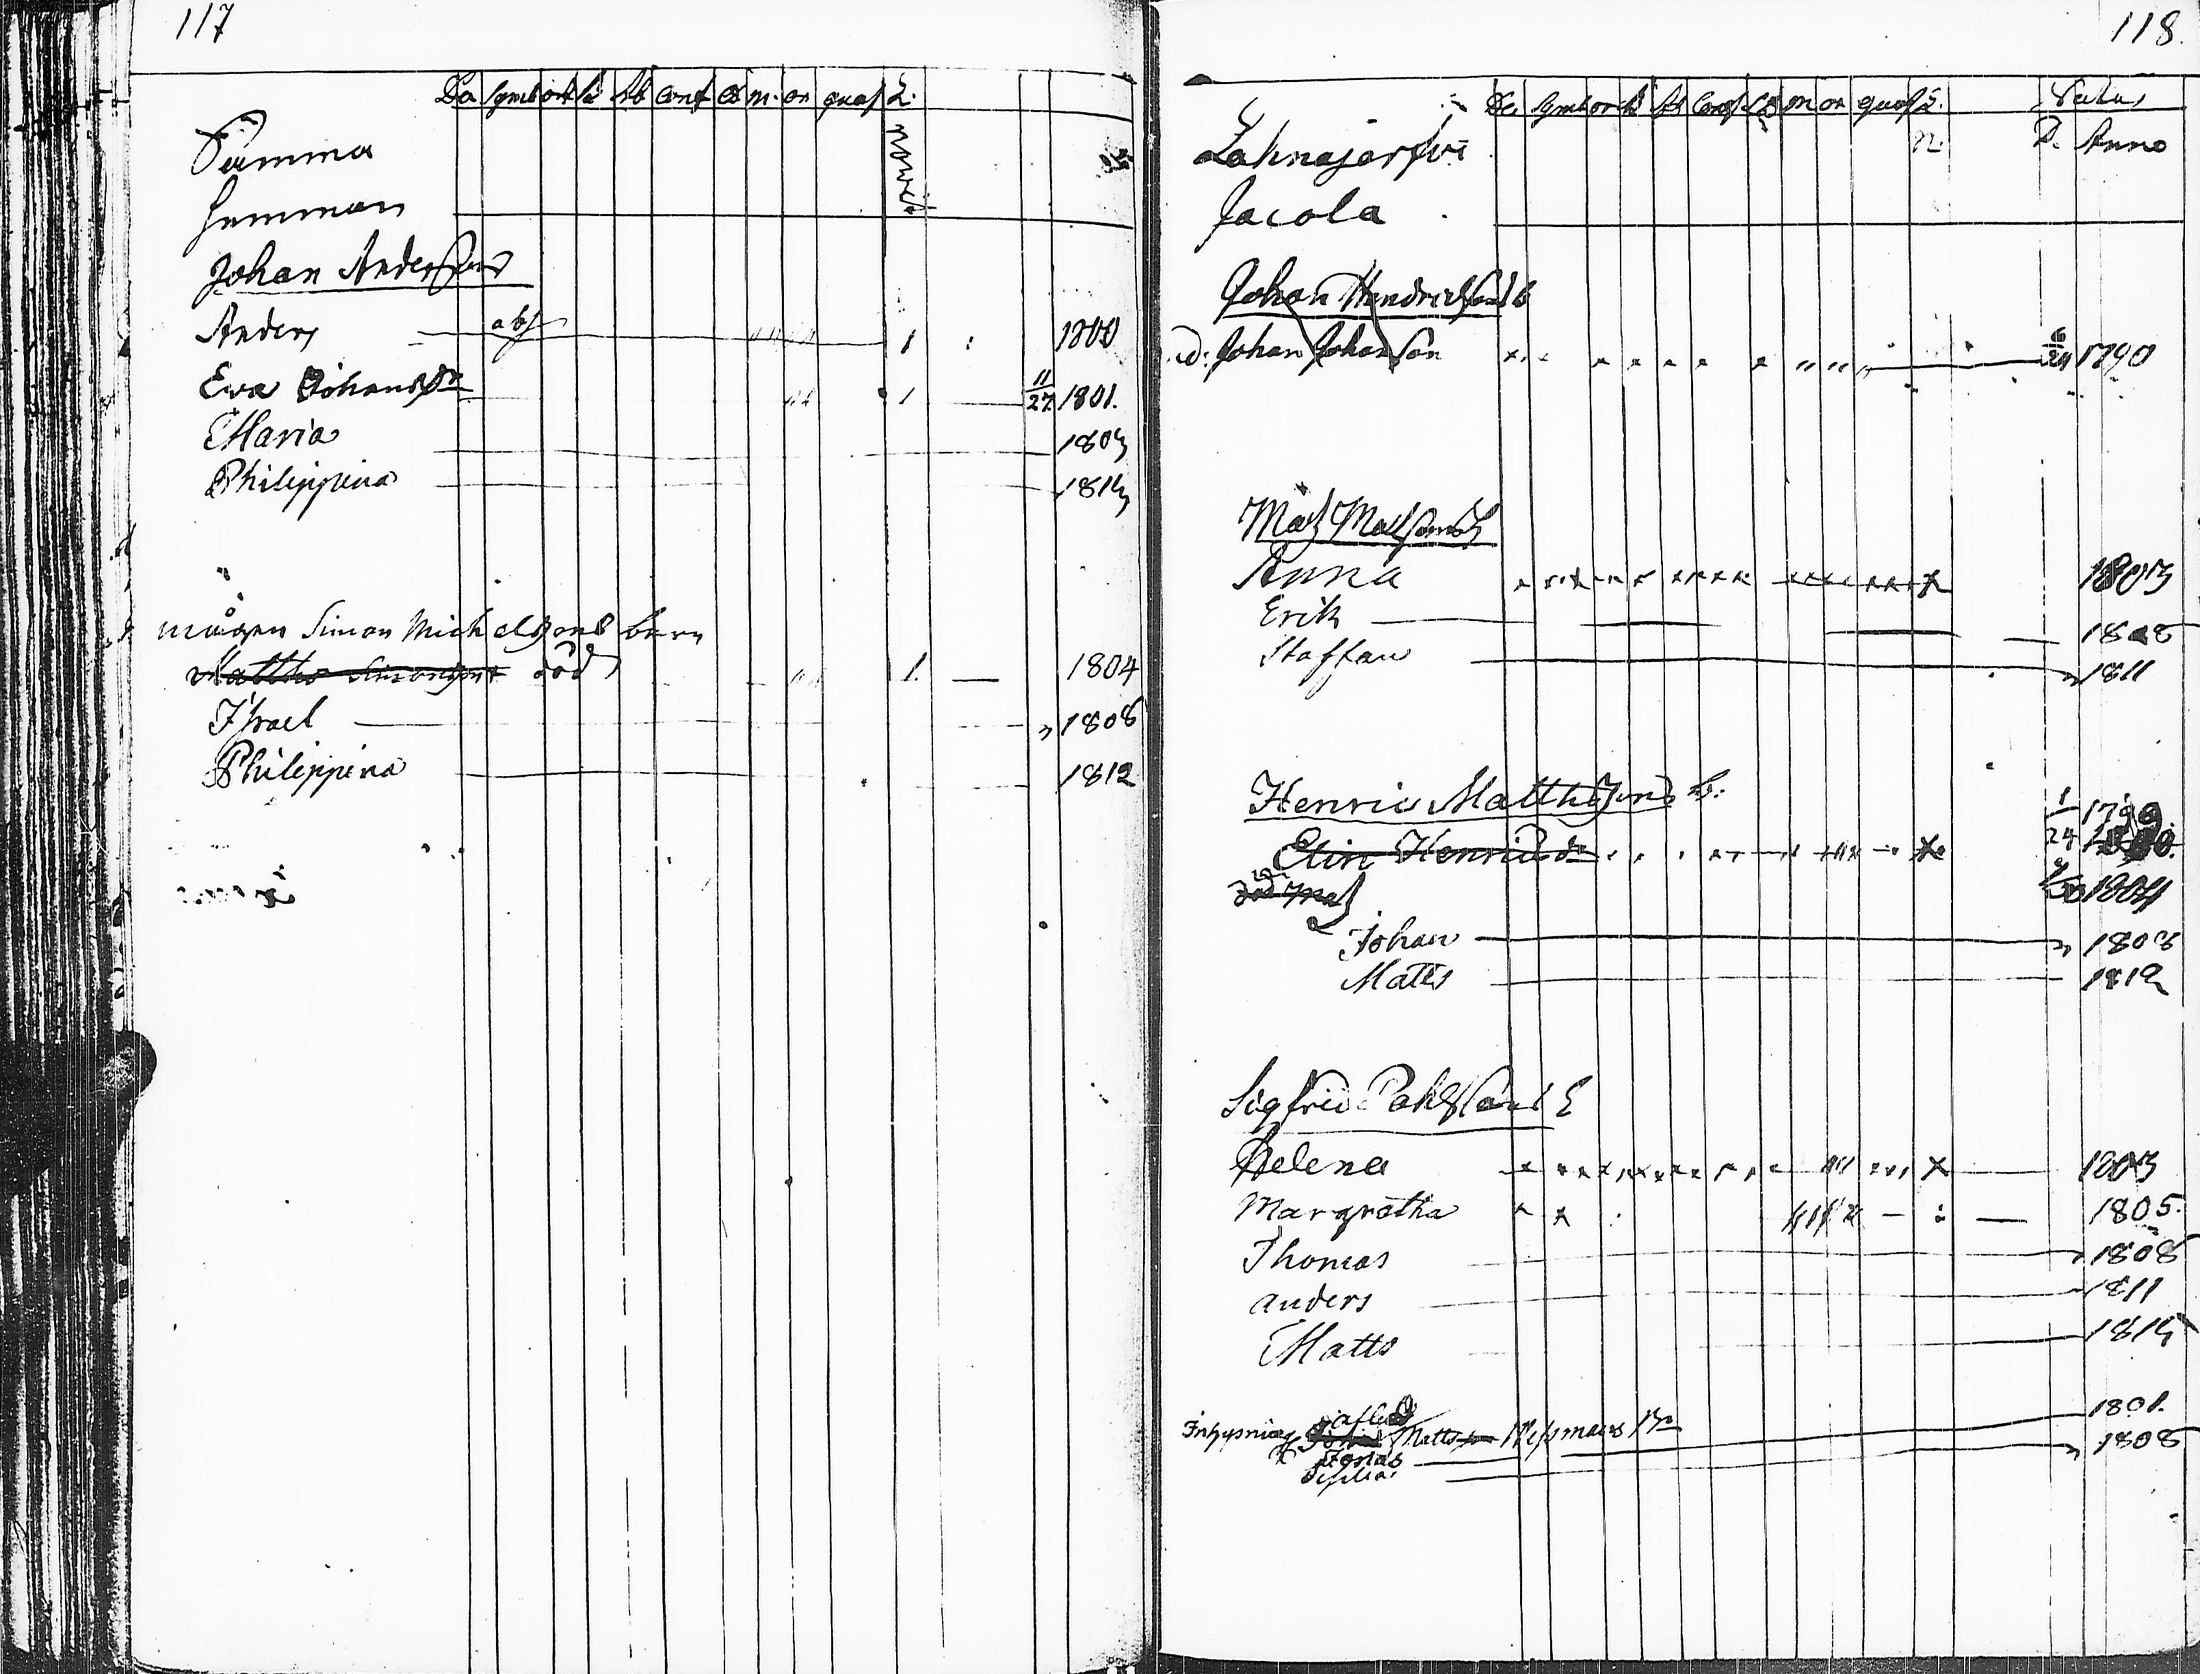 117
Do Symb or b Sa Ab Conf CD m. or quæst L.
Samma
Hemman
Johan Anderssons
Anders abs 1 1800
Ewa Johansdr 1 11/27 1801.
Maria 1803
Philippina 1814
mågen Simon Michelssons barn
Matths Simonsson död 1. 1804
Israel 1808
Philippina 1812
118.
De Symb or b Ab Conf CD m or quæst L. Natus
Lahnajerfwi D. Anno
Jacola
Johan Hendrichsons b
Johan Johanson 6/24 1790
Mats Matssons
Anna 1803
Erik 1808
Staffan 1811
Henric Matthssons b:
Elin Henricsdr 1/24 1799
död Mats 1804
Johan 1808
Matts 1812
Sigfrid Påhlssons
Helena 1803
Margretha 1805.
Thomas 1808
Anders 1811
Matts 1814
Inhysning Matts 1801.
1808